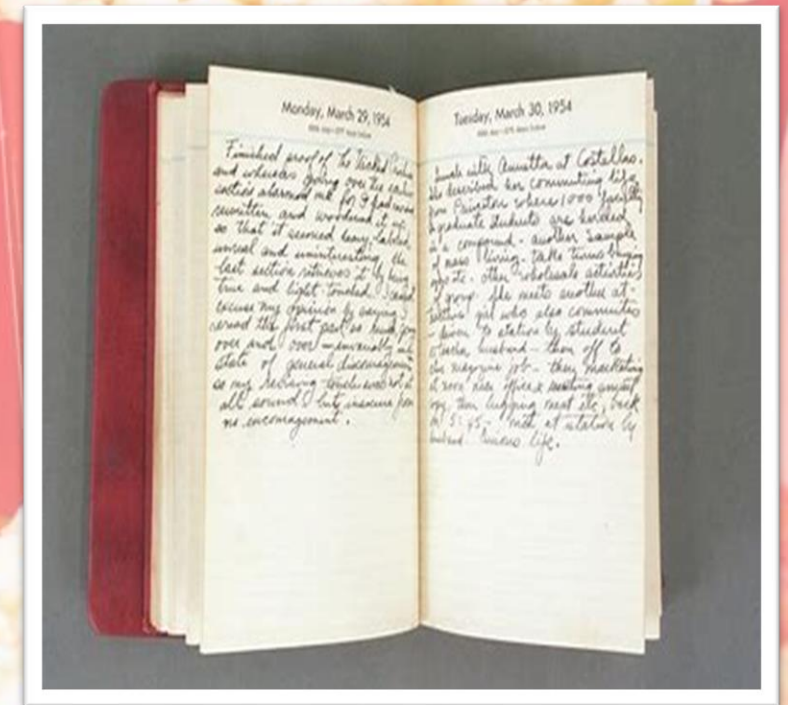 Monday, March 29, 1954
Finished proof of The Wicked
and whereas going over the earlier
section alarmed me for I had
rewritten and it up
so that it seemed heavy, labored
unreal and uninteresting, the
last section retrieves it by being
true and light-touched. I could
excuse my opinion by saying I
reread the first part so much going
over and over - invariably in a
state of general discouragement
so my revising touch was not at
all sound but insecure from
no encouragement.
Tuesday, March 30, 1954
with Annetta at Costellos.
She described her commuting life
from Princeton where 1000 faculty
& graduate students are herded
in a compound - another sample
of mass living - take turns buying
etc - other wholesale activities
of group. She meets another at-
tractive girl who also commutes
- driven to station by student
teacher husband - then off to
magazine job - they marketing
at noon near office &
then lugging meat etc, back
on 5:45 - met at station by
husband. life.